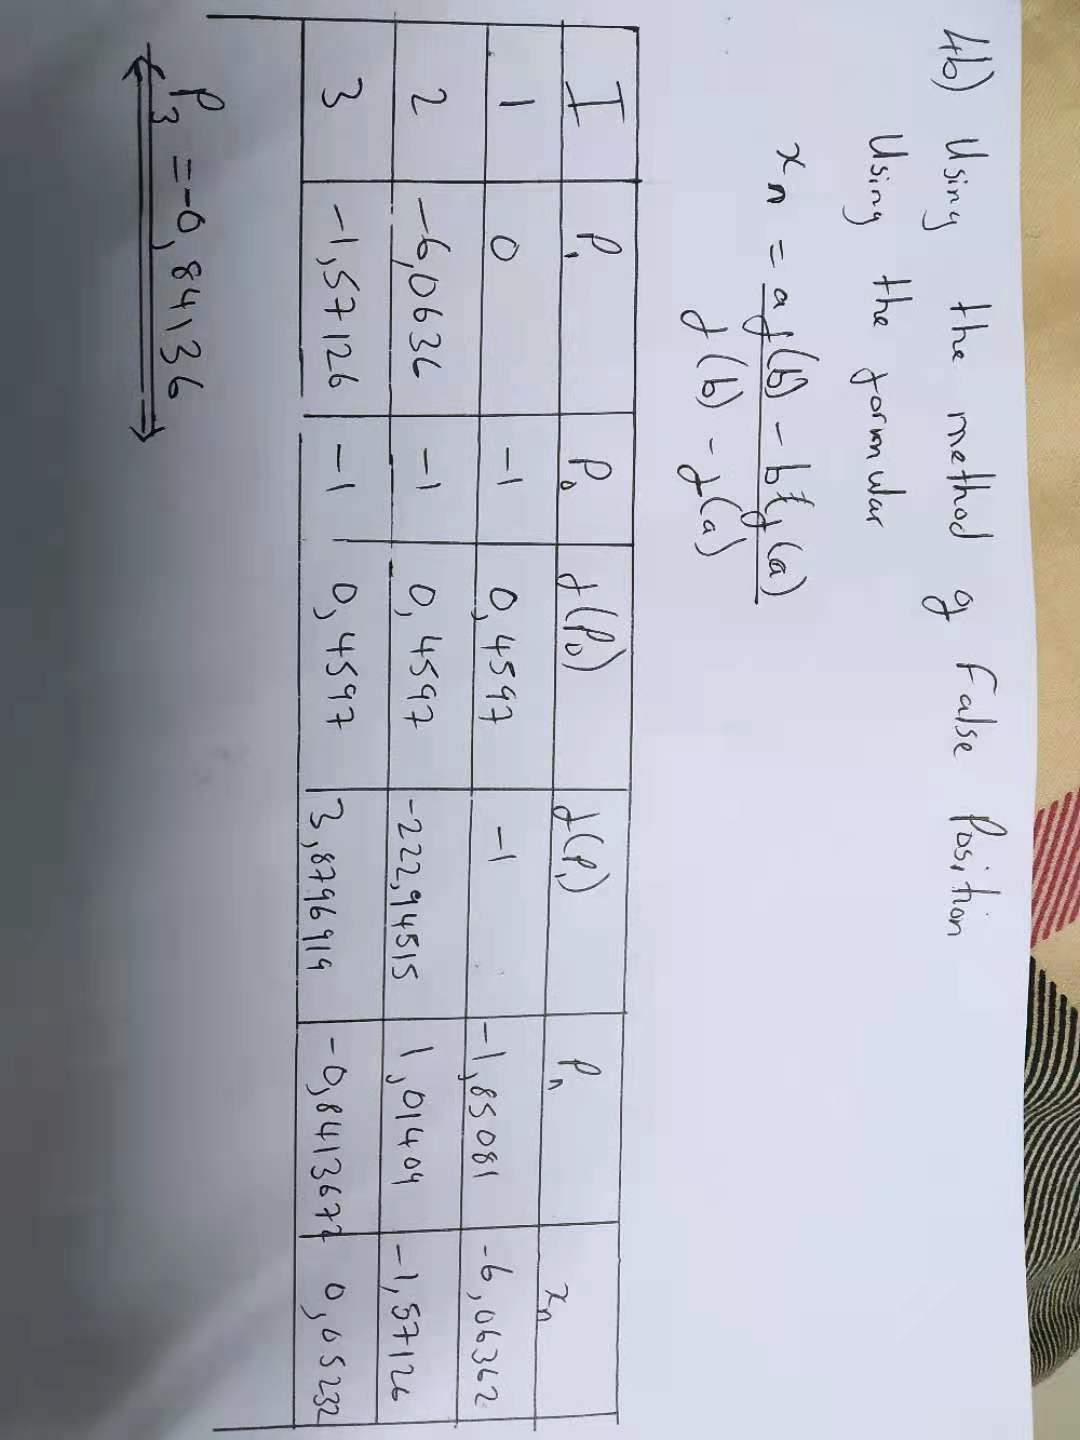 4b) Using the method of False Position
Using the formular
xn = a f(b) - b f(a)
f(b) - f(a)
I P₁ P₀ f(P₀) f(P₁) Pn xn
1 0 -1 0,4597 -1 -1,85081 -6,06362
2 -6,0636 -1 0,4597 -222,94515 1,01409 -1,57126
3 -1,57126 -1 0,4597 3,8796919 -0,8413677 0,05232
P₃ = -0,84136